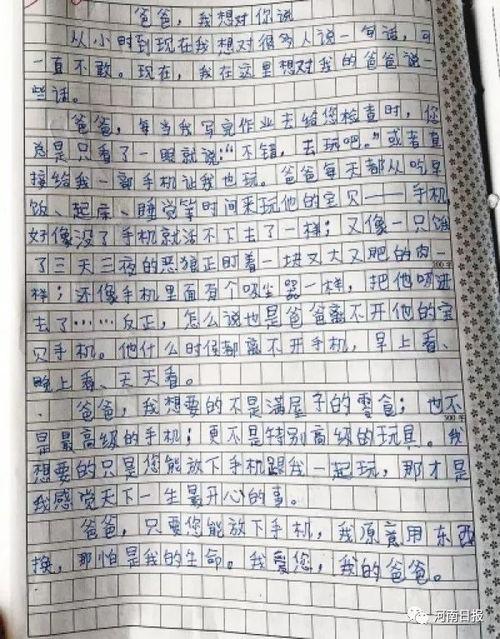 爸爸，我想对你说
从小时到现在我想对很多人说一句话，可
一直不敢。现在，我在这里想对我的爸爸说一
些话。
爸爸，每当我写完作业去给您检查时，您
总是只看了一眼就说：“不错，去玩吧。”或者直
接给我一部手机让我也玩。爸爸每天都从吃早
饭、起床、睡觉等时间来玩他的宝贝——手机
好像没了手机就活不下去了一样；又像一只饿
了三天三夜的恶狼正盯着一块又大又肥的肉一
300字
样；还像手机里面有个吸尘器一样，把他吸进
去了……反正，怎么说也是爸爸离不开他的宝
贝手机。他什么时候都离不开手机，早上看、
晚上看、天天看。
爸爸，我想要的不是满屋子的零食；也不
500字
是最高级的手机；更不是特别高级的玩具。我
想要的只是您能放下手机跟我一起玩，那才是
我感觉天下一生最开心的事。
爸爸，只要您能放下手机，我原意用东西
换，那怕是我的生命。我爱您，我的爸爸。
河南日报